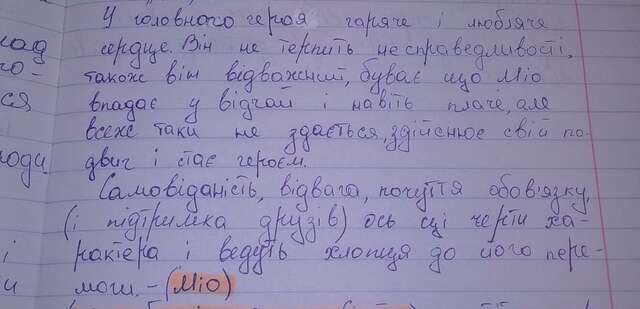 У головного героя гаряче і любляче
лад серце. Він не терпить несправедливості,
го- також він відважний, буває що Міо
ся, впадає у відчай і навіть плаче, але
всеж таки не здається, здійснює свій по-
ходи двиг і стає героєм.
Самовіданість, відвага, почуття обов'язку,
(і підтримка друзів) ось ці черти ха-
і рактера і ведуть хлопця до його пере-
и моги. – (Міо)